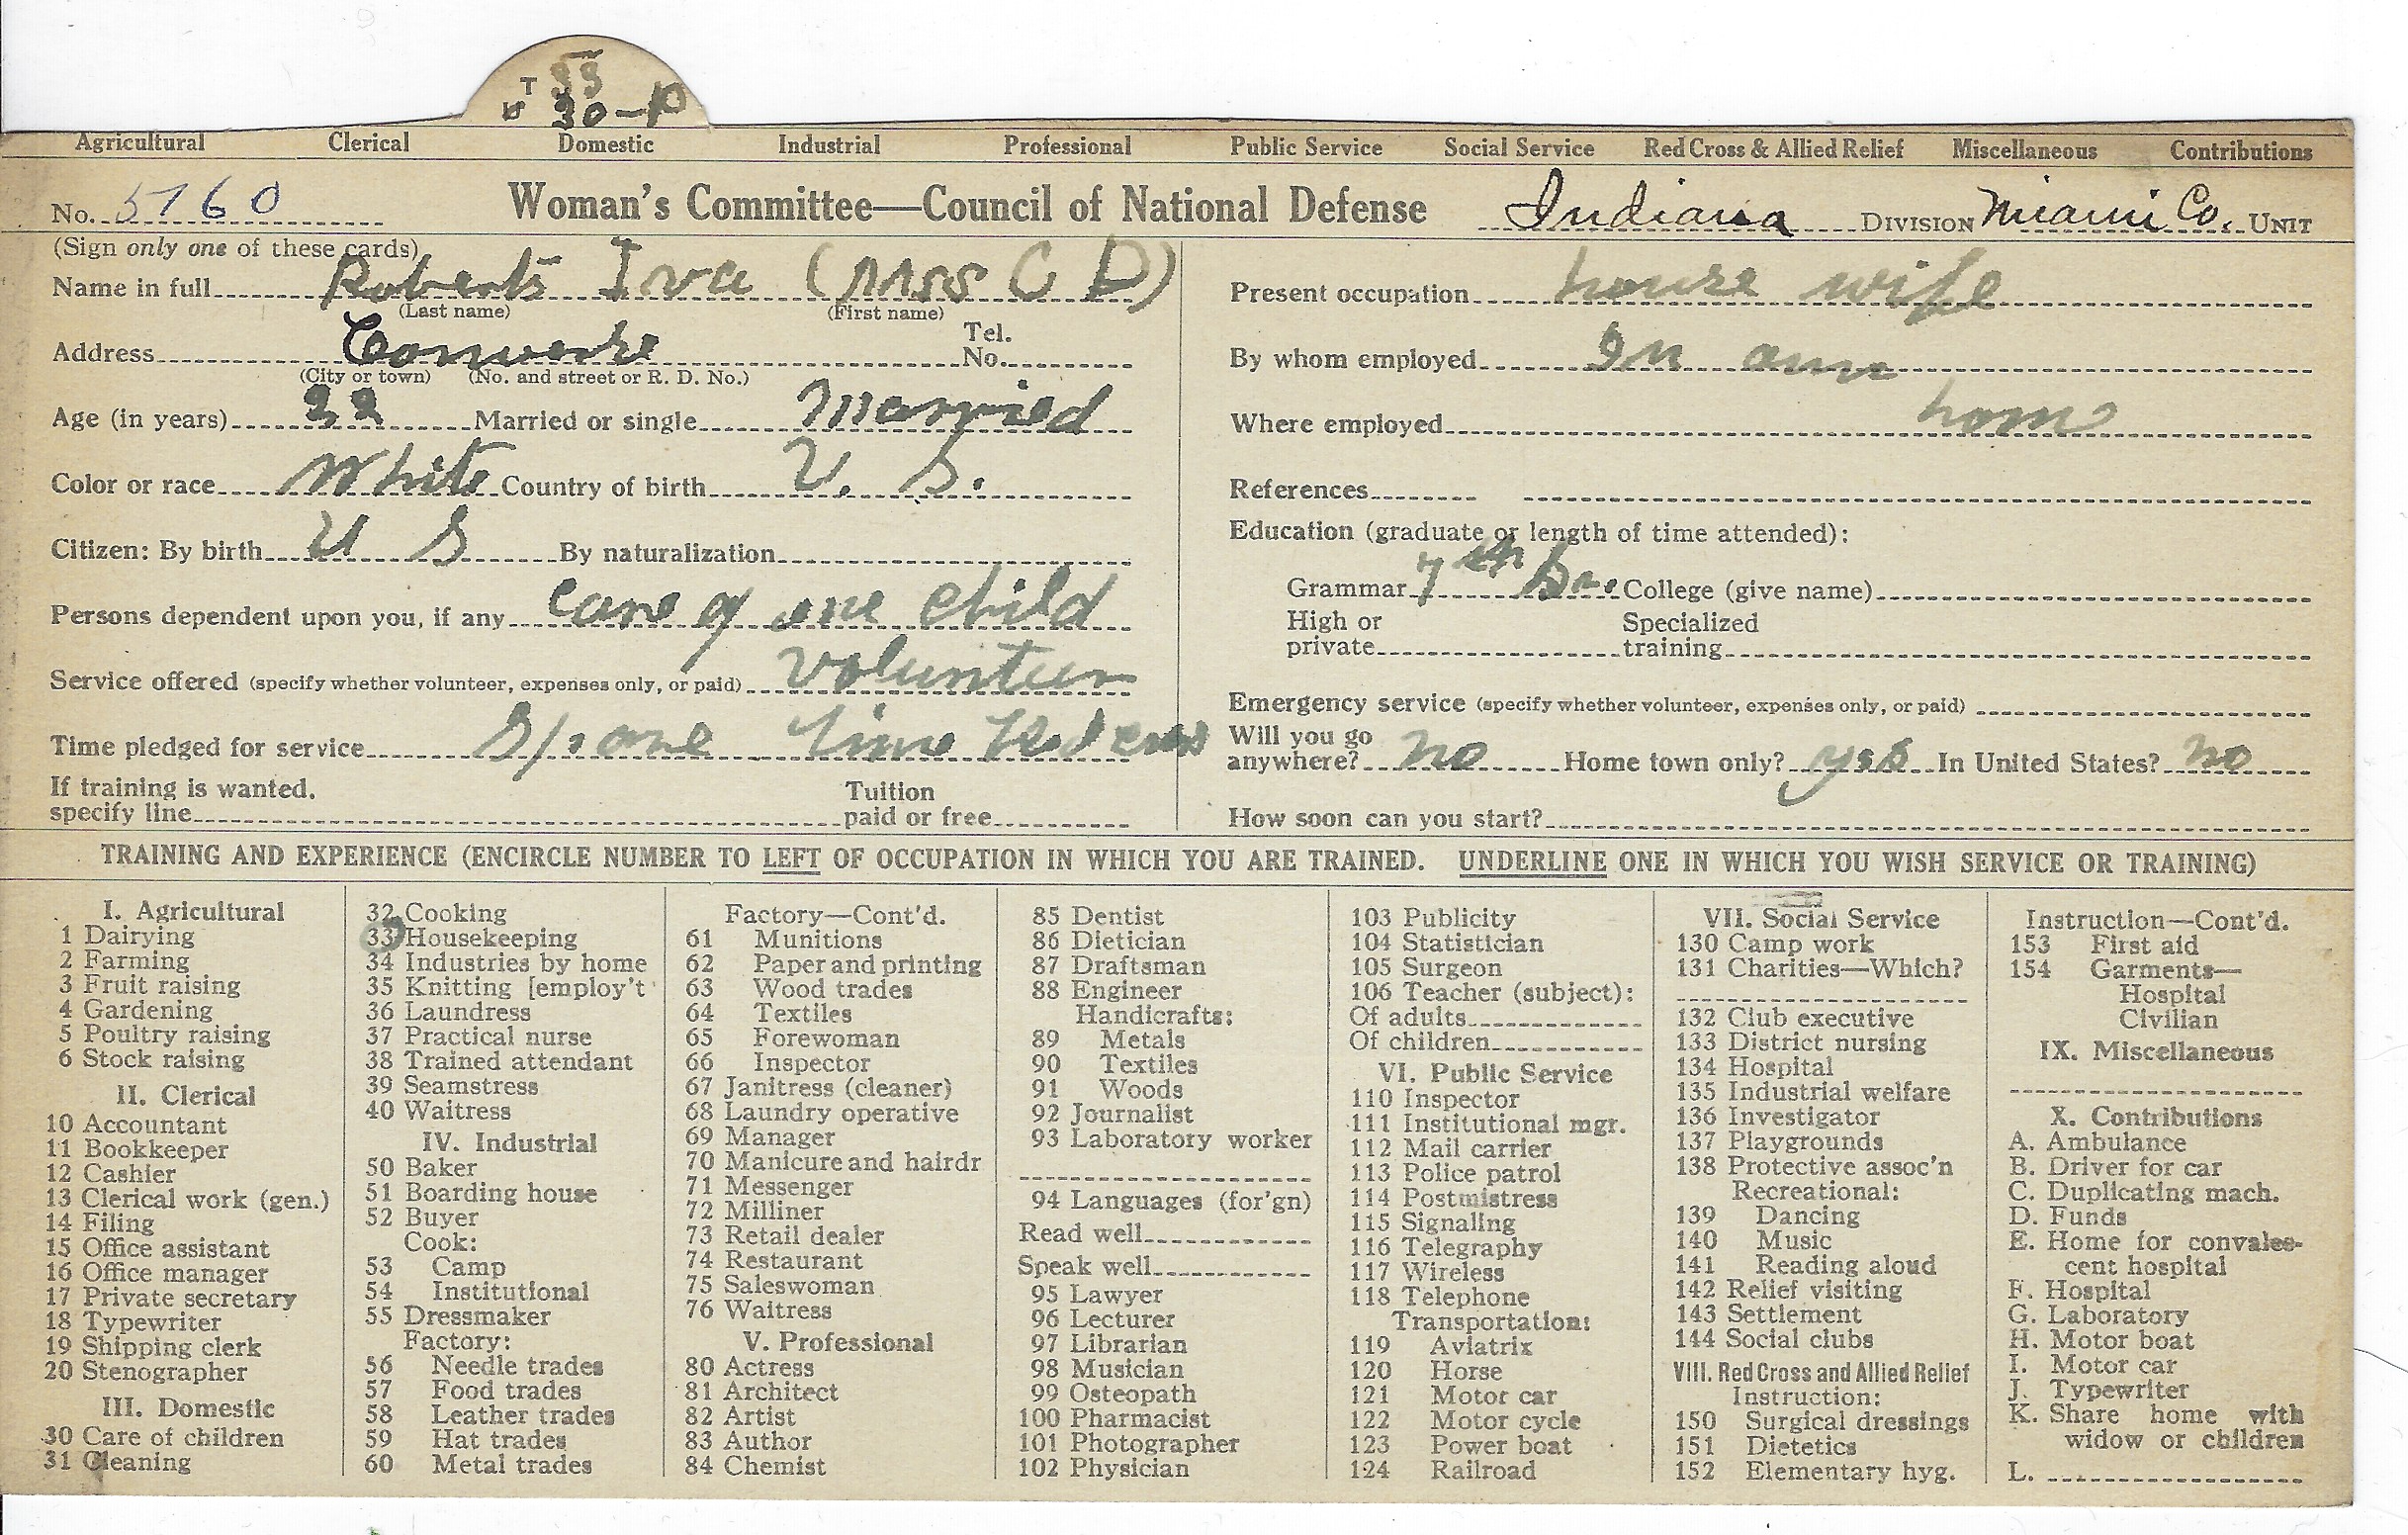 T 33
30-P
Agricultural Clerical Domestic Industrial Professional Public Service Social Service Red Cross & Allied Relief Miscellaneous Contributions
No. 5760 Woman's Committee—Council of National Defense Indiana DIVISION Miami Co. UNIT
(Sign only one of these cards)
Name in full Roberts Iva (Mrs C D)
(Last name) (First name)
Address Converse Tel. No.
(City or town) (No. and street or R. D. No.)
Age (in years) 22 Married or single Married
Color or race White Country of birth U. S.
Citizen: By birth U S By naturalization
Persons dependent upon you, if any care of one child
Service offered (specify whether volunteer, expenses only, or paid) volunteer
Time pledged for service Spare time
If training is wanted, specify line Tuition paid or free
Present occupation house wife
By whom employed In own
Where employed home
References
Education (graduate or length of time attended):
Grammar 7th College (give name)
High or private Specialized training
Emergency service (specify whether volunteer, expenses only, or paid)
Will you go anywhere? no Home town only? yes In United States? no
How soon can you start?
TRAINING AND EXPERIENCE (ENCIRCLE NUMBER TO LEFT OF OCCUPATION IN WHICH YOU ARE TRAINED. UNDERLINE ONE IN WHICH YOU WISH SERVICE OR TRAINING)
I. Agricultural
1 Dairying
2 Farming
3 Fruit raising
4 Gardening
5 Poultry raising
6 Stock raising
II. Clerical
10 Accountant
11 Bookkeeper
12 Cashier
13 Clerical work (gen.)
14 Filing
15 Office assistant
16 Office manager
17 Private secretary
18 Typewriter
19 Shipping clerk
20 Stenographer
III. Domestic
30 Care of children
31 Cleaning
32 Cooking
33 Housekeeping
34 Industries by home
35 Knitting [employ't
36 Laundress
37 Practical nurse
38 Trained attendant
39 Seamstress
40 Waitress
IV. Industrial
50 Baker
51 Boarding house
52 Buyer
Cook:
53 Camp
54 Institutional
55 Dressmaker
Factory:
56 Needle trades
57 Food trades
58 Leather trades
59 Hat trades
60 Metal trades
Factory—Cont'd.
61 Munitions
62 Paper and printing
63 Wood trades
64 Textiles
65 Forewoman
66 Inspector
67 Janitress (cleaner)
68 Laundry operative
69 Manager
70 Manicure and hairdr
71 Messenger
72 Milliner
73 Retail dealer
74 Restaurant
75 Saleswoman
76 Waitress
V. Professional
80 Actress
81 Architect
82 Artist
83 Author
84 Chemist
85 Dentist
86 Dietician
87 Draftsman
88 Engineer
Handicrafts:
89 Metals
90 Textiles
91 Woods
92 Journalist
93 Laboratory worker
94 Languages (for'gn)
Read well
Speak well
95 Lawyer
96 Lecturer
97 Librarian
98 Musician
99 Osteopath
100 Pharmacist
101 Photographer
102 Physician
103 Publicity
104 Statistician
105 Surgeon
106 Teacher (subject):
Of adults
Of children
VI. Public Service
110 Inspector
111 Institutional mgr.
112 Mail carrier
113 Police patrol
114 Postmistress
115 Signaling
116 Telegraphy
117 Wireless
118 Telephone
Transportation:
119 Aviatrix
120 Horse
121 Motor car
122 Motor cycle
123 Power boat
124 Railroad
VII. Social Service
130 Camp work
131 Charities—Which?
132 Club executive
133 District nursing
134 Hospital
135 Industrial welfare
136 Investigator
137 Playgrounds
138 Protective assoc'n
Recreational:
139 Dancing
140 Music
141 Reading aloud
142 Relief visiting
143 Settlement
144 Social clubs
VIII. Red Cross and Allied Relief
Instruction:
150 Surgical dressings
151 Dietetics
152 Elementary hyg.
Instruction—Cont'd.
153 First aid
154 Garments—
Hospital
Civilian
IX. Miscellaneous
X. Contributions
A. Ambulance
B. Driver for car
C. Duplicating mach.
D. Funds
E. Home for convales-
cent hospital
F. Hospital
G. Laboratory
H. Motor boat
I. Motor car
J. Typewriter
K. Share home with
widow or children
L.